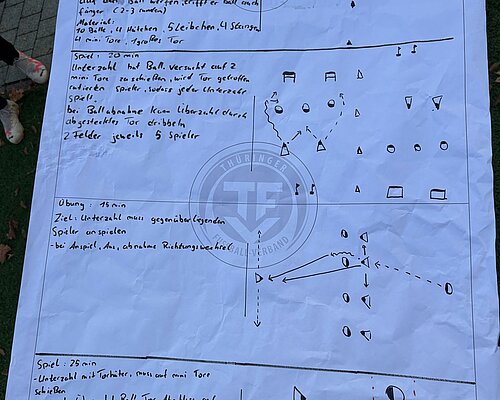 10 Bälle, 4 Hütchen, 5 Leibchen, 4 Stangen
4 mini Tore, 1 großes Tor
Spiel: 20 min
Unterzahl hat Ball. Versucht auf 2
mini Tore zu schießen, wird Tor getroffen
rotieren spieler, sodass jeder Unterzahr
spielt.
bei Ballabnahme kann Überzahl durch
abgestecktes Tor dribbeln
2 Felder jeweils 5 Spieler
THÜRINGER
TFV
FUSSBALL-VERBAND
Übung: 15 min
Ziel: Unterzahl muss gegenüberliegenden
Spieler anspielen
-bei Anspiel, Aus, abnahme Richtungswechsel
Spiel: 25 min
-Unterzahl mit Torhüter, muss auf mini Tore
schießen